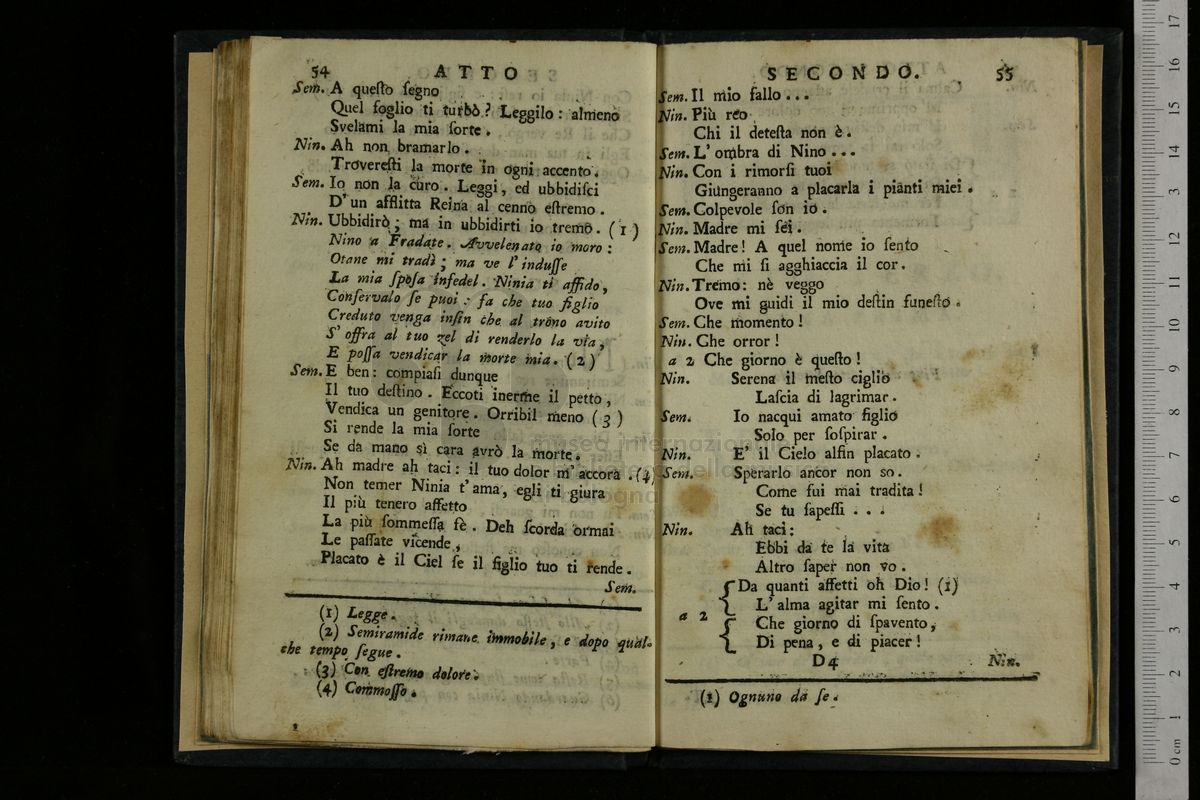 54 ATTO
Sem. A queſto ſegno
Quel foglio ti turbò? Leggilo: almeno
Svelami la mia ſorte.
Nin. Ah non bramarlo.
Trovereſti la morte in ogni accento.
Sem. Io non la curo. Leggi, ed ubbidiſci
D'un afflitta Reina al cenno eſtremo.
Nin. Ubbidirò; ma in ubbidirti io tremo. (1)
Nino a Fradate. Avvelenato io moro:
Otane mi tradì; ma ve l'induſſe
La mia ſpoſa infedel. Ninia ti affido,
Conſervalo ſe puoi: fa che tuo figlio
Creduto venga inſin che al trono avito
S'offra al tuo zel di renderlo la via,
E poſſa vendicar la morte mia. (2)
Sem. E ben: compiaſi dunque
Il tuo deſtino. Eccoti inerme il petto,
Vendica un genitore. Orribil meno (3)
Si rende la mia ſorte
Se da mano sì cara avrò la morte.
Nin. Ah madre ah taci: il tuo dolor m'accora. (4)
Non temer Ninia t'ama, egli ti giura
Il più tenero affetto
La più ſommeſſa fè. Deh ſcorda ormai
Le paſſate vicende,
Placato è il Ciel ſe il figlio tuo ti rende.
Sem.
(1) Legge.
(2) Semiramide rimane immobile, e dopo qual-
che tempo ſegue.
(3) Con eſtremo dolore.
(4) Commoſſo.
SECONDO. 55
Sem. Il mio fallo...
Nin. Più reo
Chi il deteſta non è.
Sem. L'ombra di Nino...
Nin. Con i rimorſi tuoi
Giungeranno a placarla i pianti miei.
Sem. Colpevole ſon io.
Nin. Madre mi ſei.
Sem. Madre! A quel nome io ſento
Che mi ſi agghiaccia il cor.
Nin. Tremo: nè veggo
Ove mi guidi il mio deſtin funeſto.
Sem. Che momento!
Nin. Che orror!
a 2 Che giorno è queſto!
Nin. Serena il meſto ciglio
Laſcia di lagrimar.
Sem. Io nacqui amato figlio
Solo per ſoſpirar.
Nin. E' il Cielo alfin placato.
Sem. Sperarlo ancor non so.
Come fui mai tradita!
Se tu ſapeſſi...
Nin. Ah taci:
Ebbi da te la vita
Altro ſaper non vo.
Da quanti affetti oh Dio! (1)
L'alma agitar mi ſento.
a 2 Che giorno di ſpavento,
Di pena, e di piacer!
D4 Nin.
(1) Ognuno da ſe.
museo internazionale
0 cm 1 2 3 4 5 6 7 8 9 10 11 12 13 14 15 16 17